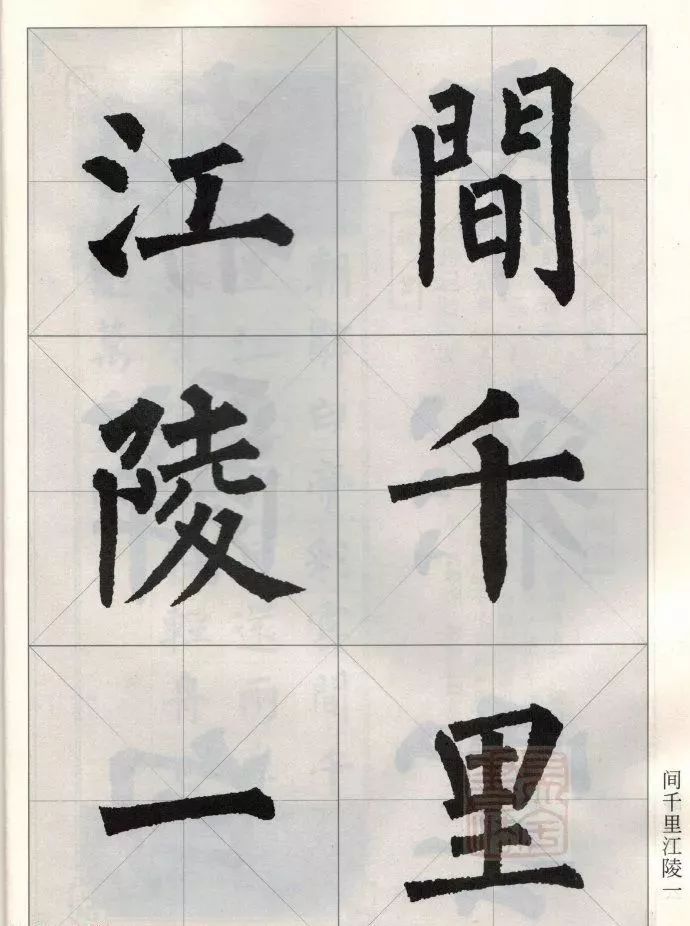 間千里
江陵一
间千里江陵一